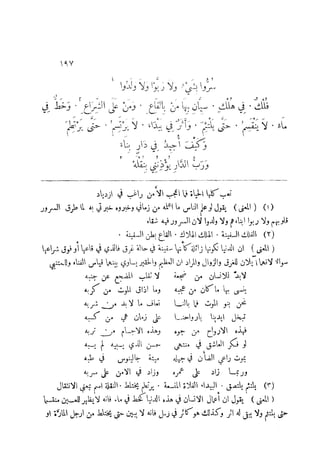 ١٩٧
سُرُّوا بِشَيْءٍ وَلَا رَبَّوْا وَلَا وَلَدُوا ١
فُلْكٌ. فِي هُلْكٍ. سِيَّانِ بِهَا مَنْ بِالْقَاعِ. وَمَنْ عَلَى الشِّرَاعِ ٢. وَخَطٌّ فِي
مَاءٍ. لَا يَنْقَسِمُ. حَتَّى يَلْتَئِمَ. وَأَثَرٌ فِي بَيْدَاءَ. لَا يَرْتَسِمُ. حَتَّى يَرْتَطِمَ ٣
وَكَيْفَ أُجِيدُ فِي دَارٍ بِنَاءً
وَرَبُّ الدَّارِ يُؤْذِنُنِي بِنَقْلَهْ
تعب كلها الحياة فما اعجب الا من راغب في ازدياد
(١) (المعنى) يقول لو علم الناس ما اعلمه من زماني وخبروه خبرتي به لما طرق السرور
قلوبهم ولا ربوا ابناءهم ولا ولدوا لان السرور فيه شقاء
(٢) الفلك السفينة. الهلك الهلاك. القاع بطن السفينة.
(المعنى) ان الدنيا لكونها زائلة كأنها سفينة في حالة غرق فالذي في قاعها أو فوق شراعها
سواء لانهما يؤلان للغرق والزوال والمراد ان العظيم والحقير يساوي بينهما قياس الفناء وللمتنبي
لابد للانسان من ضجعة لا تقلب المضجع عن جنبه
ينسى بها ما كان من عجبه وما اذاق الموت من كربه
نحن بنو الموت فما بالنا نعاف ما لا بد من شربه
تبخل ايدينا بارواحنا على زمان هي من كسبه
فهذه الارواح من جوه وهذه الاجسام من تربه
لو فكر العاشق في منتهى حسن الذي يسبيه لم يسبه
يموت راعي الضأن في جهله ميتة جالينوس في طبه
وربما زاد على عمره وزاد في الامن على سربه
(٣) يلتئم يلتصق. البيداء الفلاة المتسعة. يرتطم يختلط. النقلة اسم بمعنى الانتقال
(المعنى) يقول ان أعمال الانسان في هذه الدنيا كخط في ماء. فانه لا يظهر للعين منقسما
حتى يلتئم ولا يبقى له اثر وكذلك هو كأثر في رمل فانه لا يبين حتى يختلط من ارجل المارة او